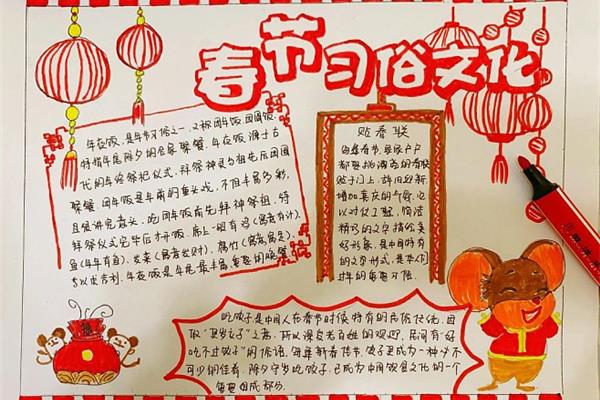 春节习俗文化
年夜饭,是年节习俗之一,又称团年饭、团圆饭,
特指年尾除夕的合家聚餐。年夜饭源于古
代的年终祭祀仪式,拜祭神灵与祖先后团圆
聚餐。团年饭是年前的重头戏,不但丰富多彩,
且很讲究意义。吃团年饭前先拜神祭祖,待
拜祭仪式完毕后才开饭。席上一般有鸡(寓意有计)、
鱼(年年有鱼)、
等以求吉利。年夜饭是年尾最丰盛、
贴春联
每逢春节,家家户户
都要挑
贴于门上,辞旧迎新,
增加喜庆的气氛。它
以对仗工整,简洁
精巧的文字描绘美
好形象,是中国特有
的文学形式,是
过年的重要习俗。
吃饺子是中国人在春节时候特有的民俗传统,因
取“更岁交子”之意,所以深受老百姓的欢迎,民间有“好
吃不过饺子”的俗语,每年新春佳节,饺子更成为一种必不
可少的佳肴。除夕守岁吃饺子,已成为中国饮食文化的一个
重要组成部分。
福